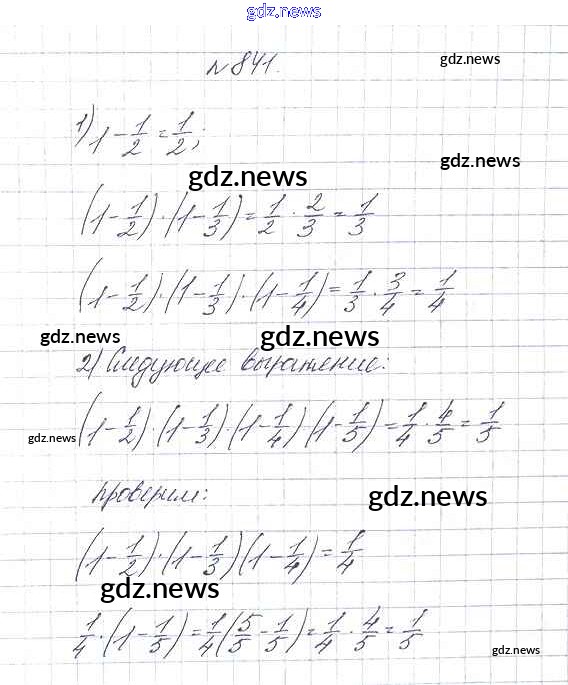 gdz.news
№841.
gdz.news
1) 1 - 1/2 = 1/2;
gdz.news
gdz.news
(1 - 1/2) · (1 - 1/3) = 1/2 · 2/3 = 1/3
(1 - 1/2) · (1 - 1/3) · (1 - 1/4) = 1/3 · 3/4 = 1/4
gdz.news
gdz.news
2) Следующее выражение:
(1 - 1/2) · (1 - 1/3) · (1 - 1/4) (1 - 1/5) = 1/4 · 4/5 = 1/5
gdz.news
Проверим:
gdz.news
(1 - 1/2) · (1 - 1/3) (1 - 1/4) = 1/4
gdz.news
1/4 · (1 - 1/5) = 1/4 (5/5 - 1/5) = 1/4 · 4/5 = 1/5
gdz.news